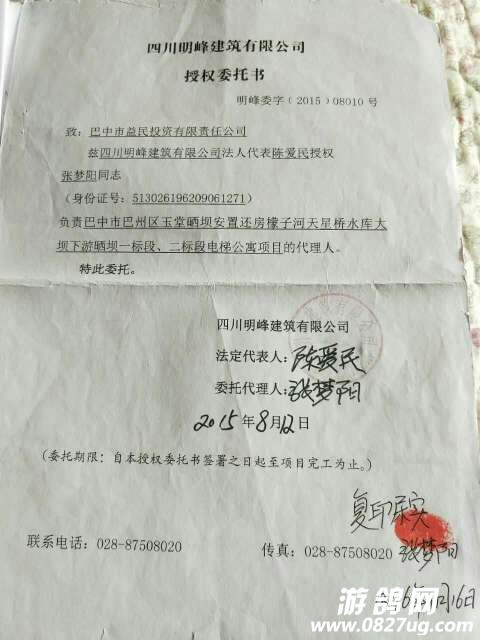 四川明峰建筑有限公司
授权委托书
明峰委字（2015）08010 号
致：巴中市益民投资有限责任公司
兹四川明峰建筑有限公司法人代表陈爱民授权
张梦阳同志
（身份证号：513026196209061271）
负责巴中市巴州区玉堂晒坝安置还房檬子河天星桥水库大
坝下游晒坝一标段、二标段电梯公寓项目的代理人。
特此委托。
四川明峰建筑有限公司
法定代表人：陈爱民
委托代理人：张梦阳
2015年8月12日
（委托期限：自本授权委托书签署之日起至项目完工为止。）
复印属实
联系电话：028-87508020
传真：028-87508020 张梦阳
月16日
游鸽网
www.0827ug.com